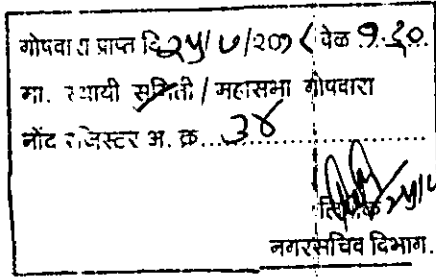 गोषवारा प्राप्त दि २५/७/२०१८ वेळ १.३०
मा. स्थायी समिती / महासभा गोषवारा
नोंद रजिस्टर अ. क्र. ३४
लिपिक २५/७
नगरसचिव विभाग.